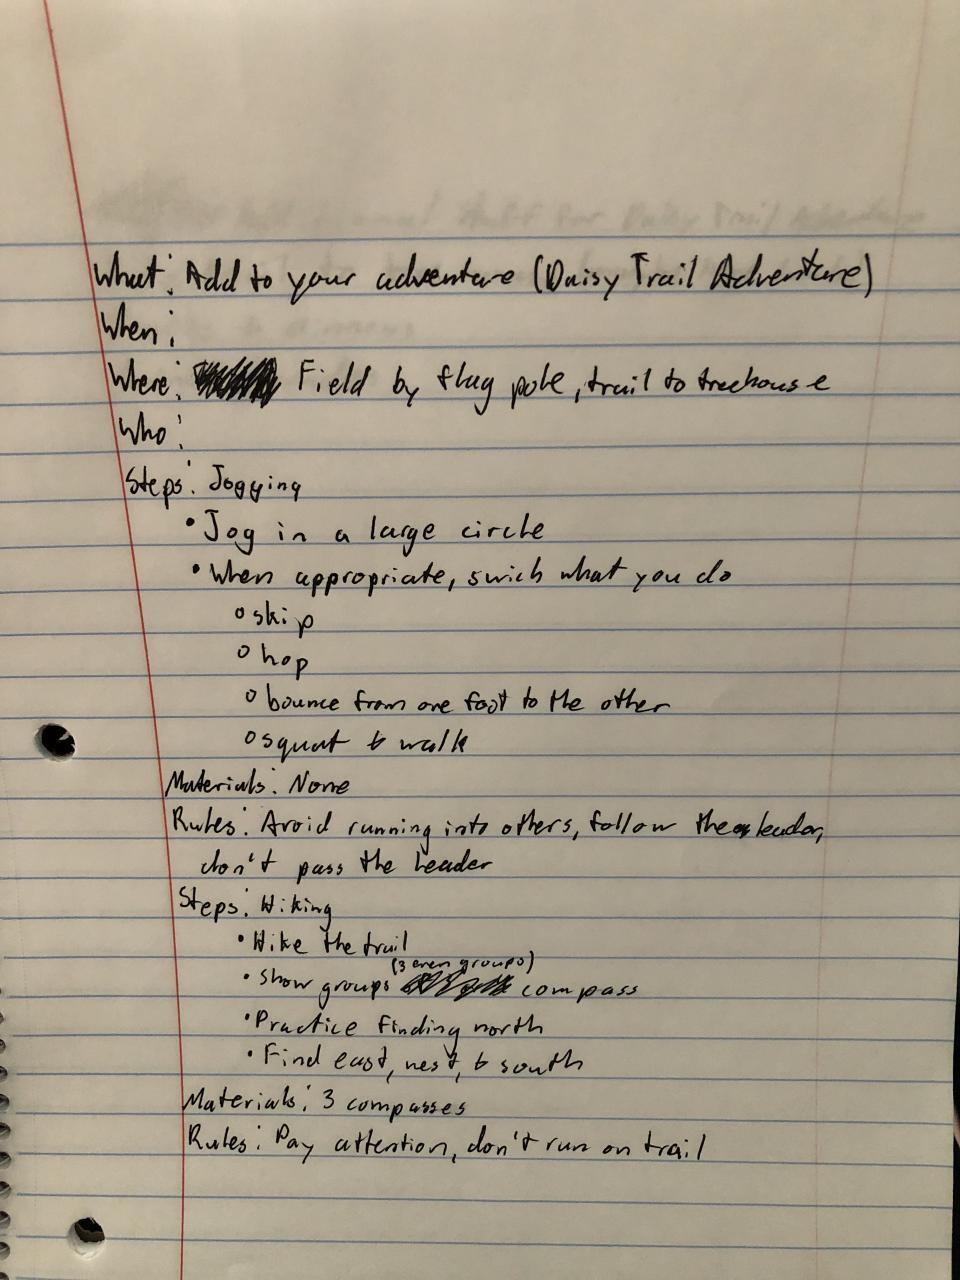 What: Add to your adventure (Daisy Trail Adventure)
When:
Where: Field by flag pole, trail to treehouse
Who:
Steps: Jogging
• Jog in a large circle
• When appropriate, swich what you do
o skip
o hop
o bounce from one foot to the other
o squat & walk
Materials: None
Rules: Avoid running into others, follow the leader,
don't pass the leader
Steps: Hiking
• Hike the trail
(3 even groups)
• Show groups compass
• Practice finding north
• Find east, west, & south
Materials: 3 compasses
Rules: Pay attention, don't run on trail